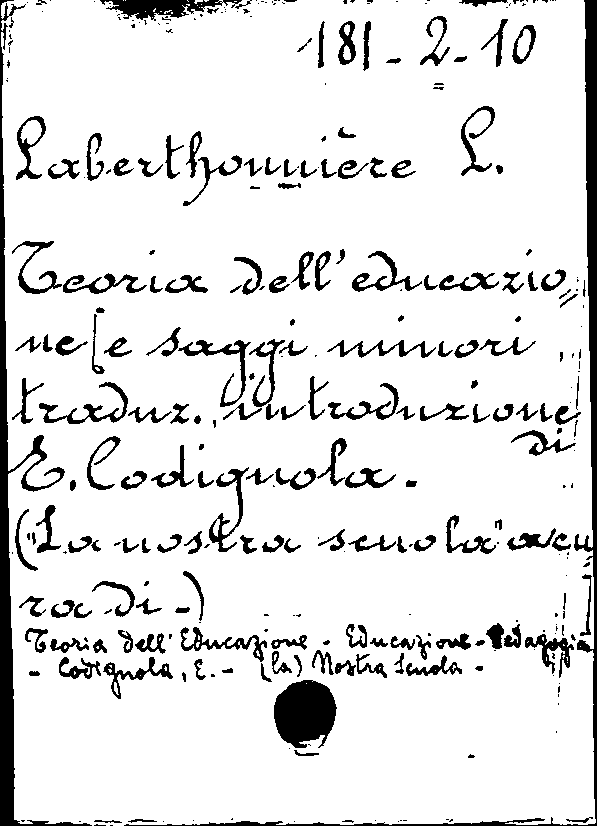 181-2-10
Laberthonnière L.
Teoria dell'educazio=
ne [e saggi minori
traduz., introduzione
di
E. Codignola.
("La nostra scuola" a cu
ra di -)
Teoria dell'Educazione - Educazione - Pedagogia
- Codignola, E. - (la) Nostra Scuola -